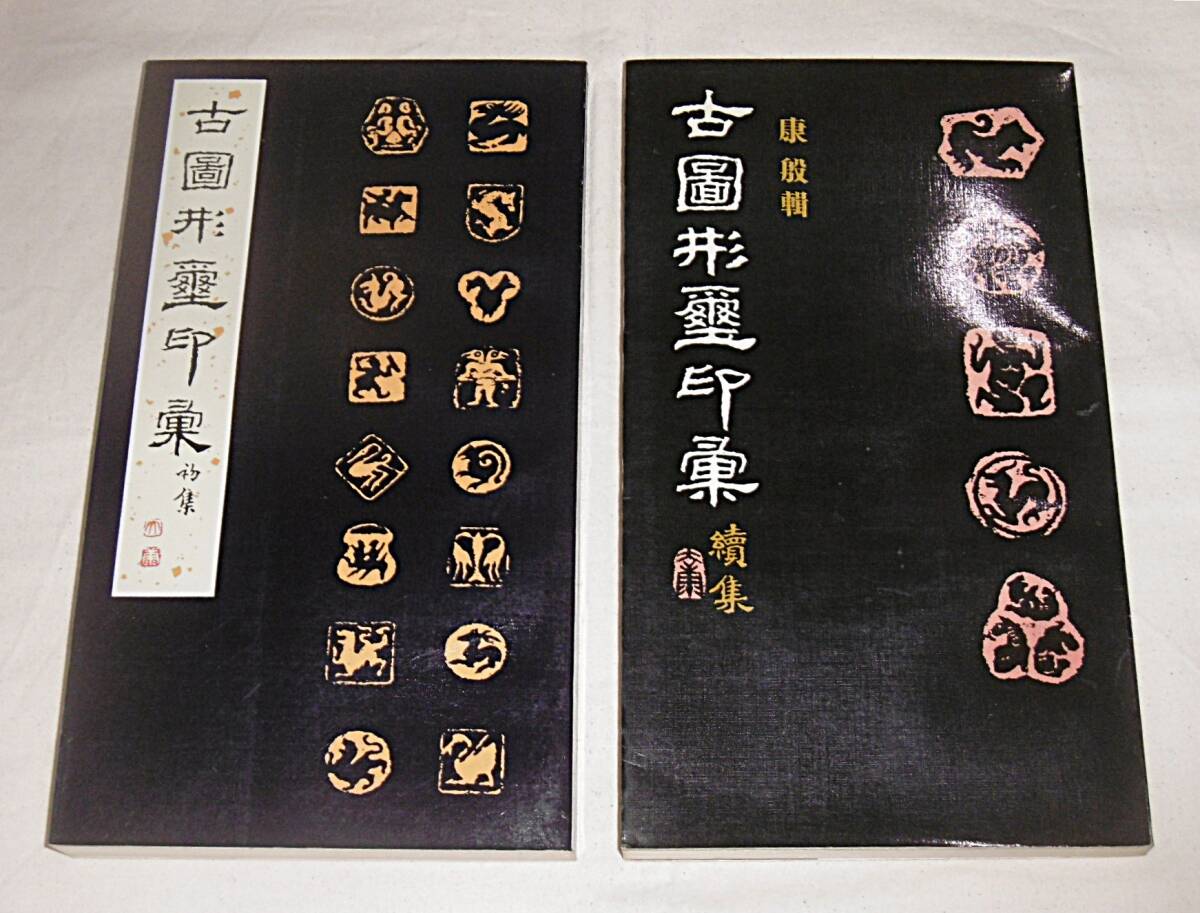 古圖形璽印彙
初集
康殷輯
古圖形璽印彙
續集
大康